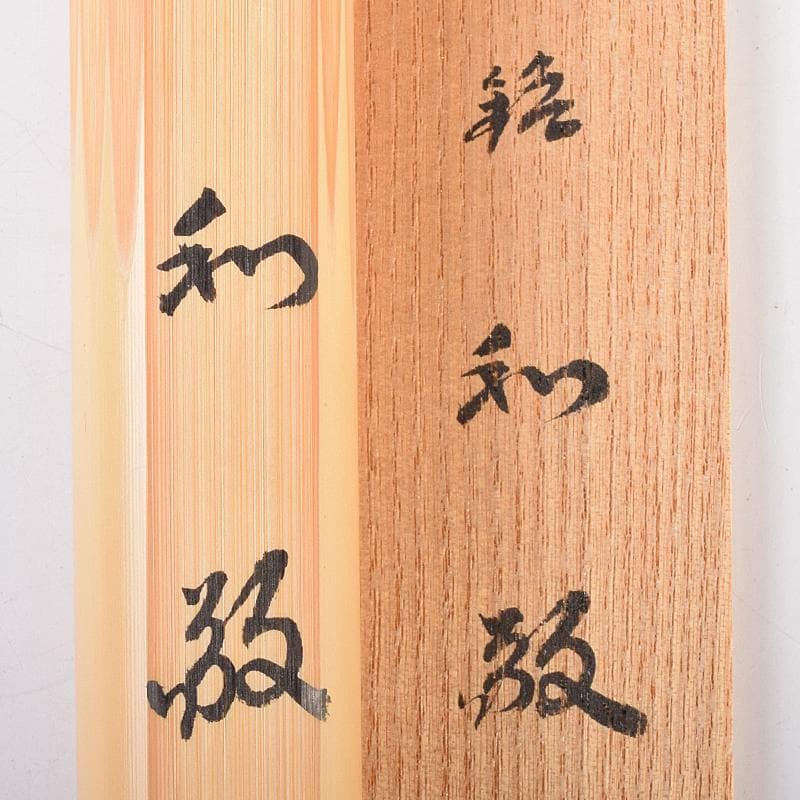 銘 和敬
和敬